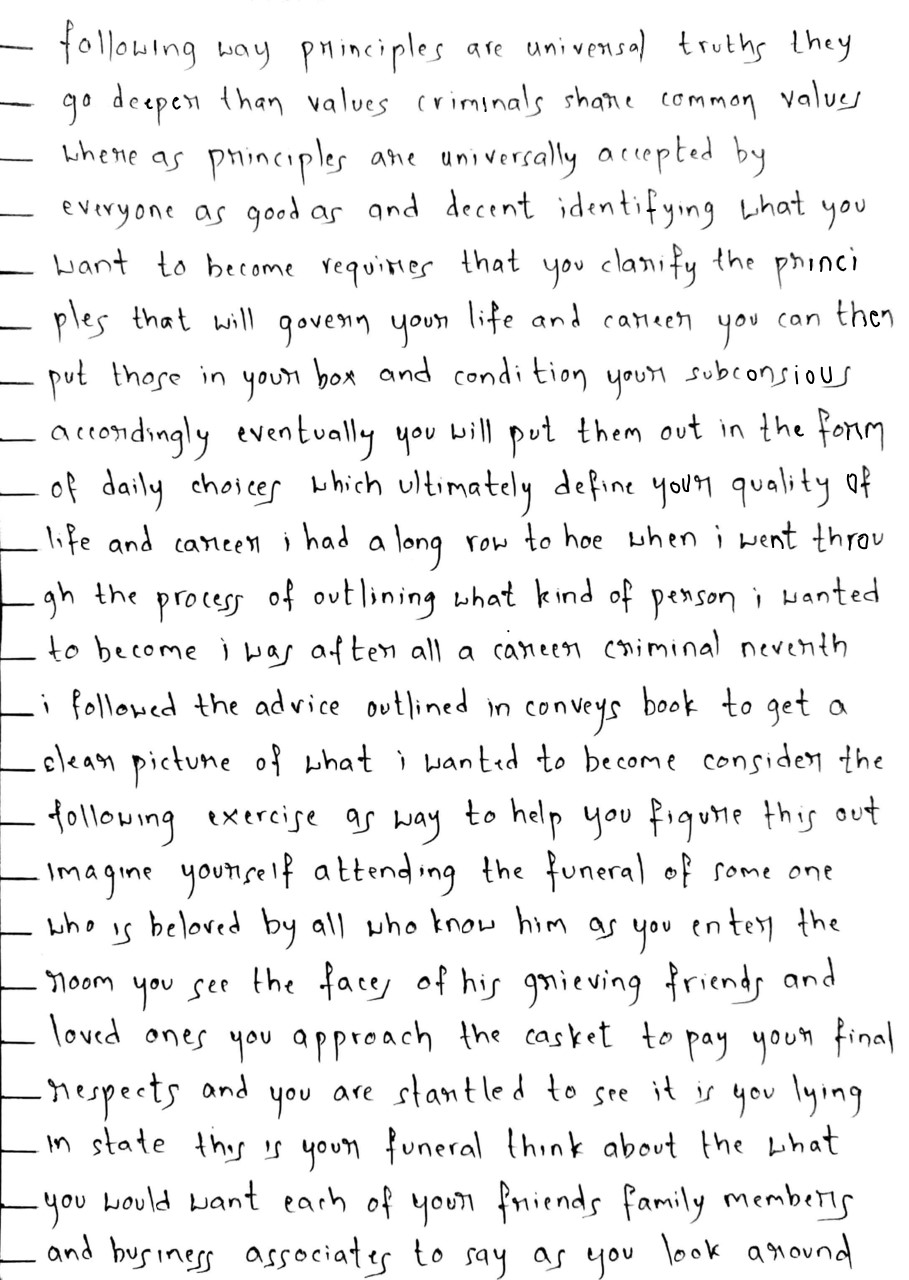 following way principles are universal truths they
go deeper than values criminals share common values
where as principles are universally accepted by
everyone as good as and decent identifying what you
want to become requires that you clarify the princi
ples that will govern your life and career you can then
put those in your box and condition your subconsious
accordingly eventually you will put them out in the form
of daily choices which ultimately define your quality of
life and career i had a long row to hoe when i went throu
gh the process of outlining what kind of person i wanted
to become i was after all a career criminal neverth
i followed the advice outlined in conveys book to get a
clear picture of what i wanted to become consider the
following exercise as way to help you figure this out
Imagine yourself attending the funeral of some one
who is beloved by all who know him as you enter the
room you see the faces of his grieving friends and
loved ones you approach the casket to pay your final
respects and you are startled to see it is you lying
in state this is your funeral think about the what
you would want each of your friends family members
and business associates to say as you look around